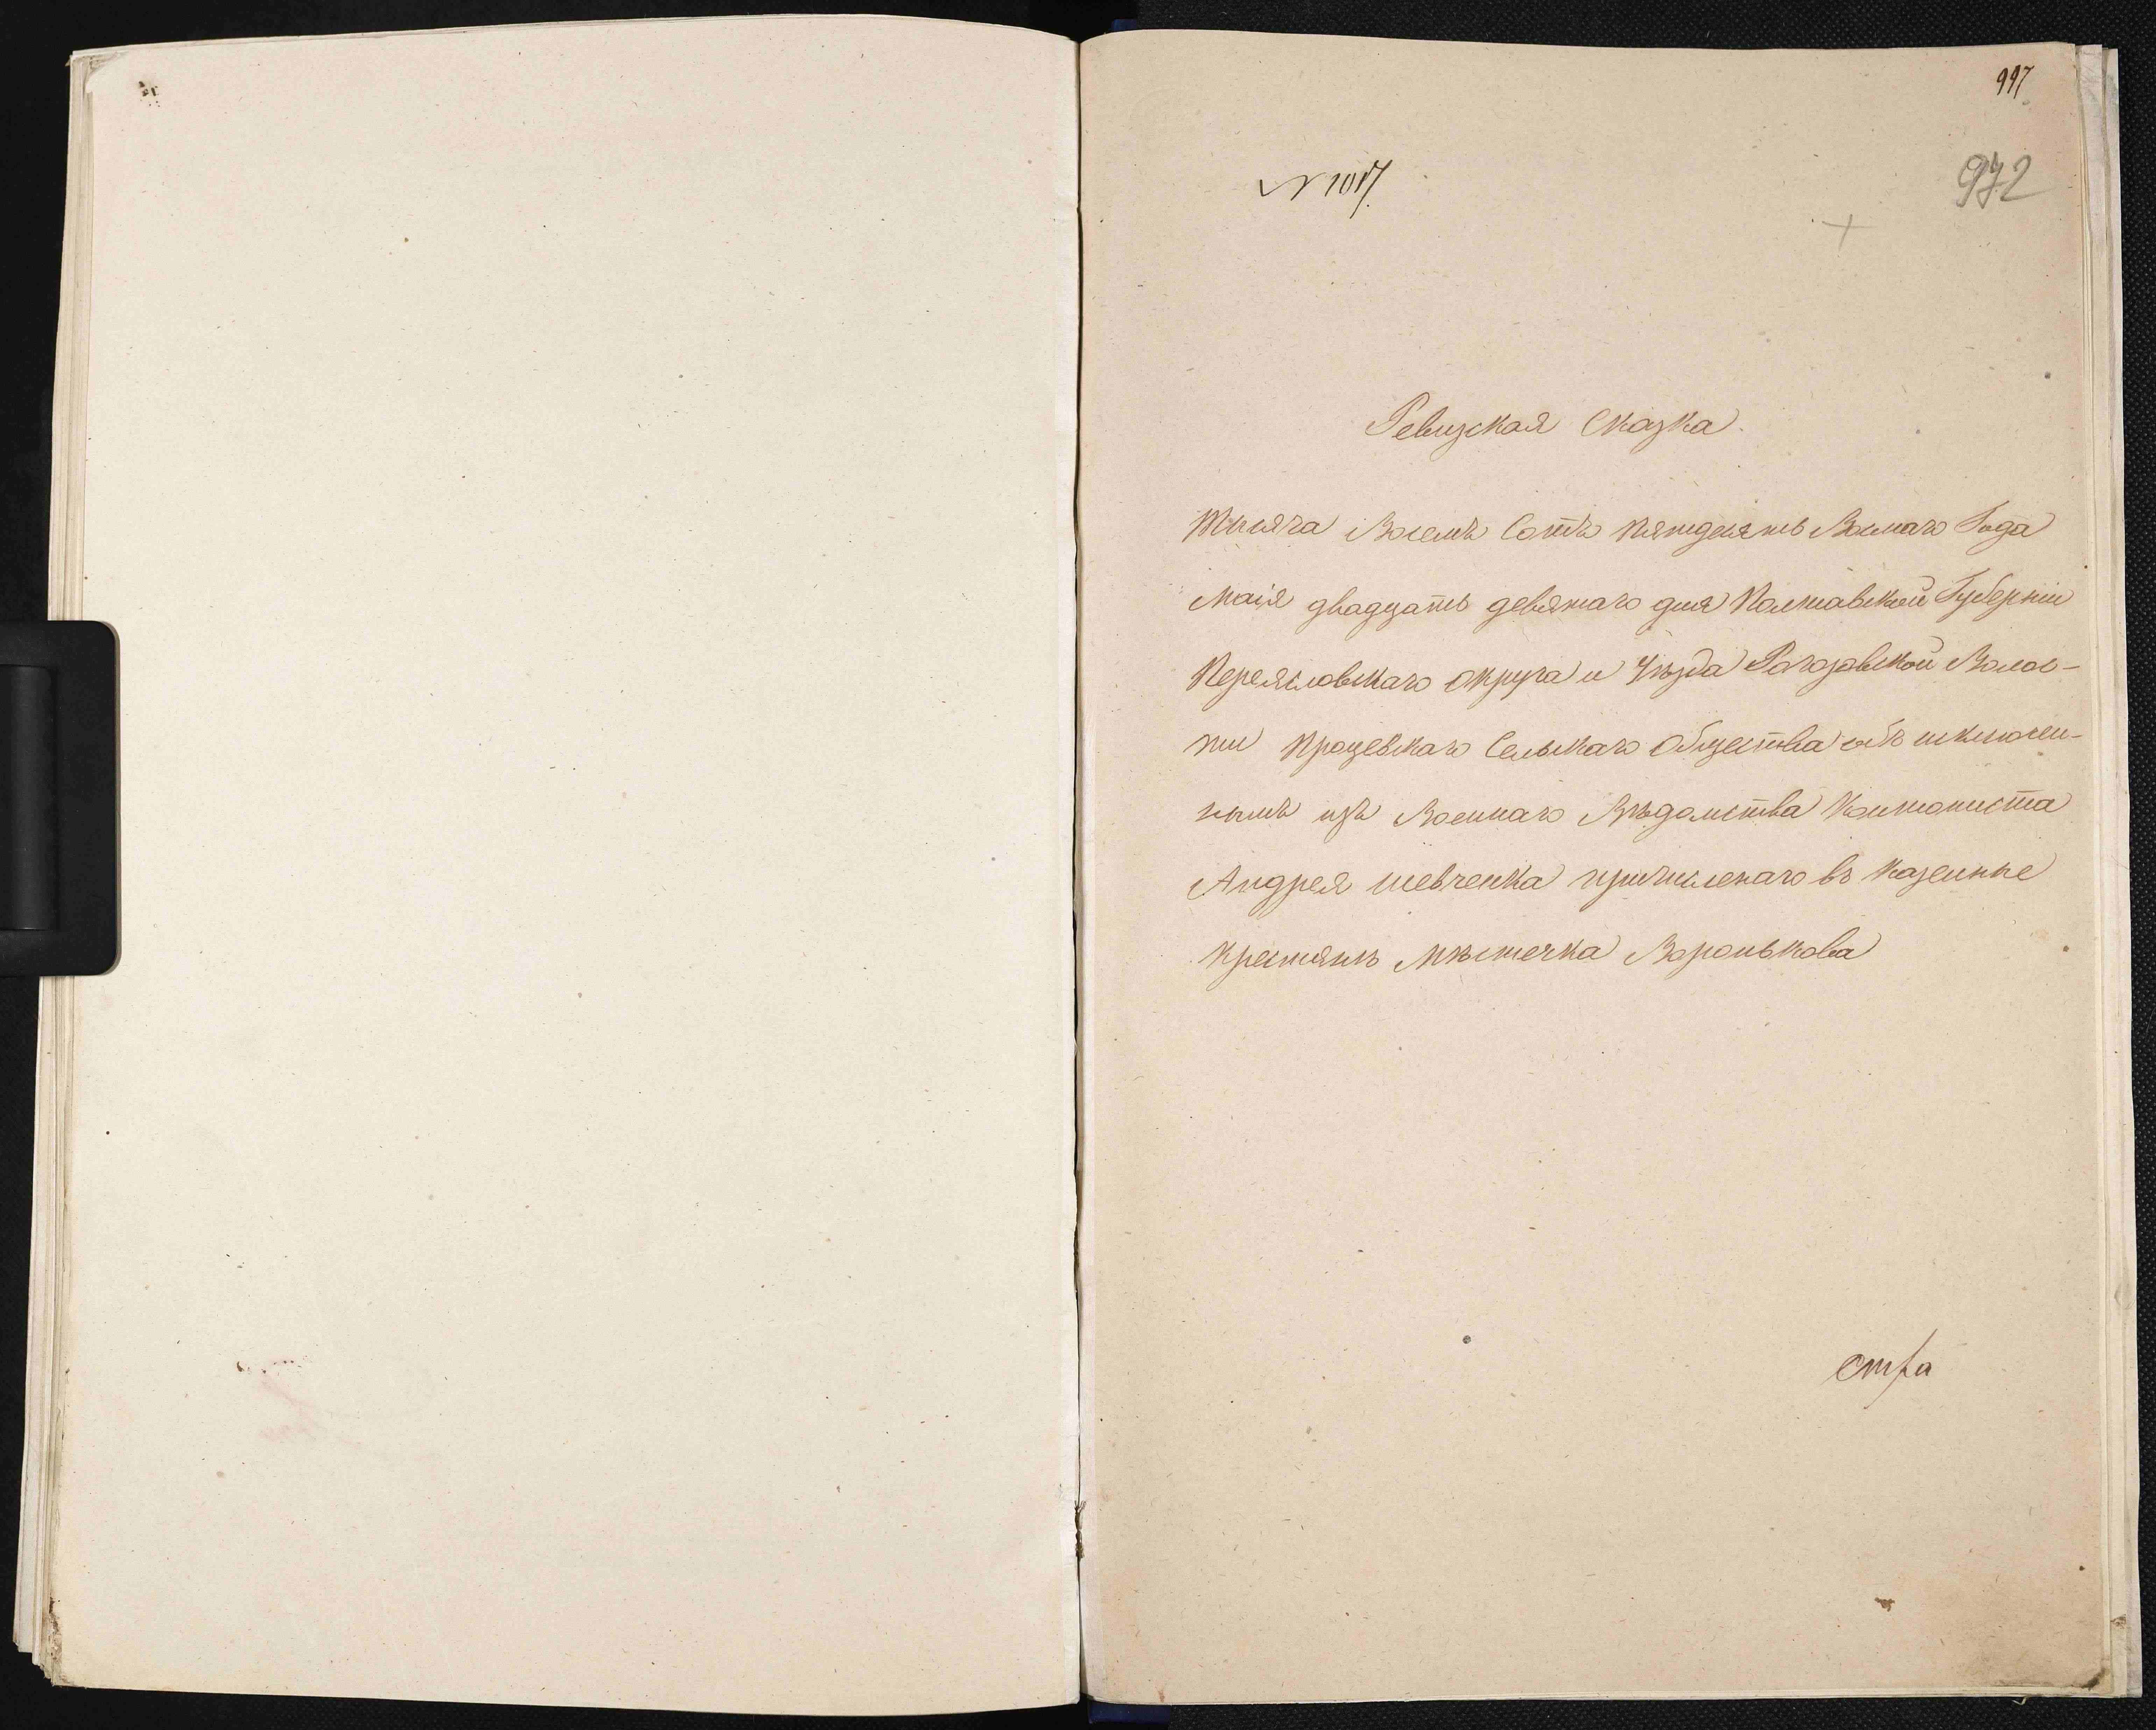 997
972
№ 1017.
Ревизская Сказка.
Тысяча Восемъ Сотъ пятдесятъ Восмаго Года
Маія двадцать девятаго дня Полтавской Губерніи
Переясловскаго округа и Уѣзда Рогозовской Волос-
ти Процевскаго Сельскаго Общества объ исключен-
нымъ изъ Военнаго Вѣдомства Кантониста
Андрея Шевченка причисленаго въ казенные
крестянъ Мѣстечка Воронькова